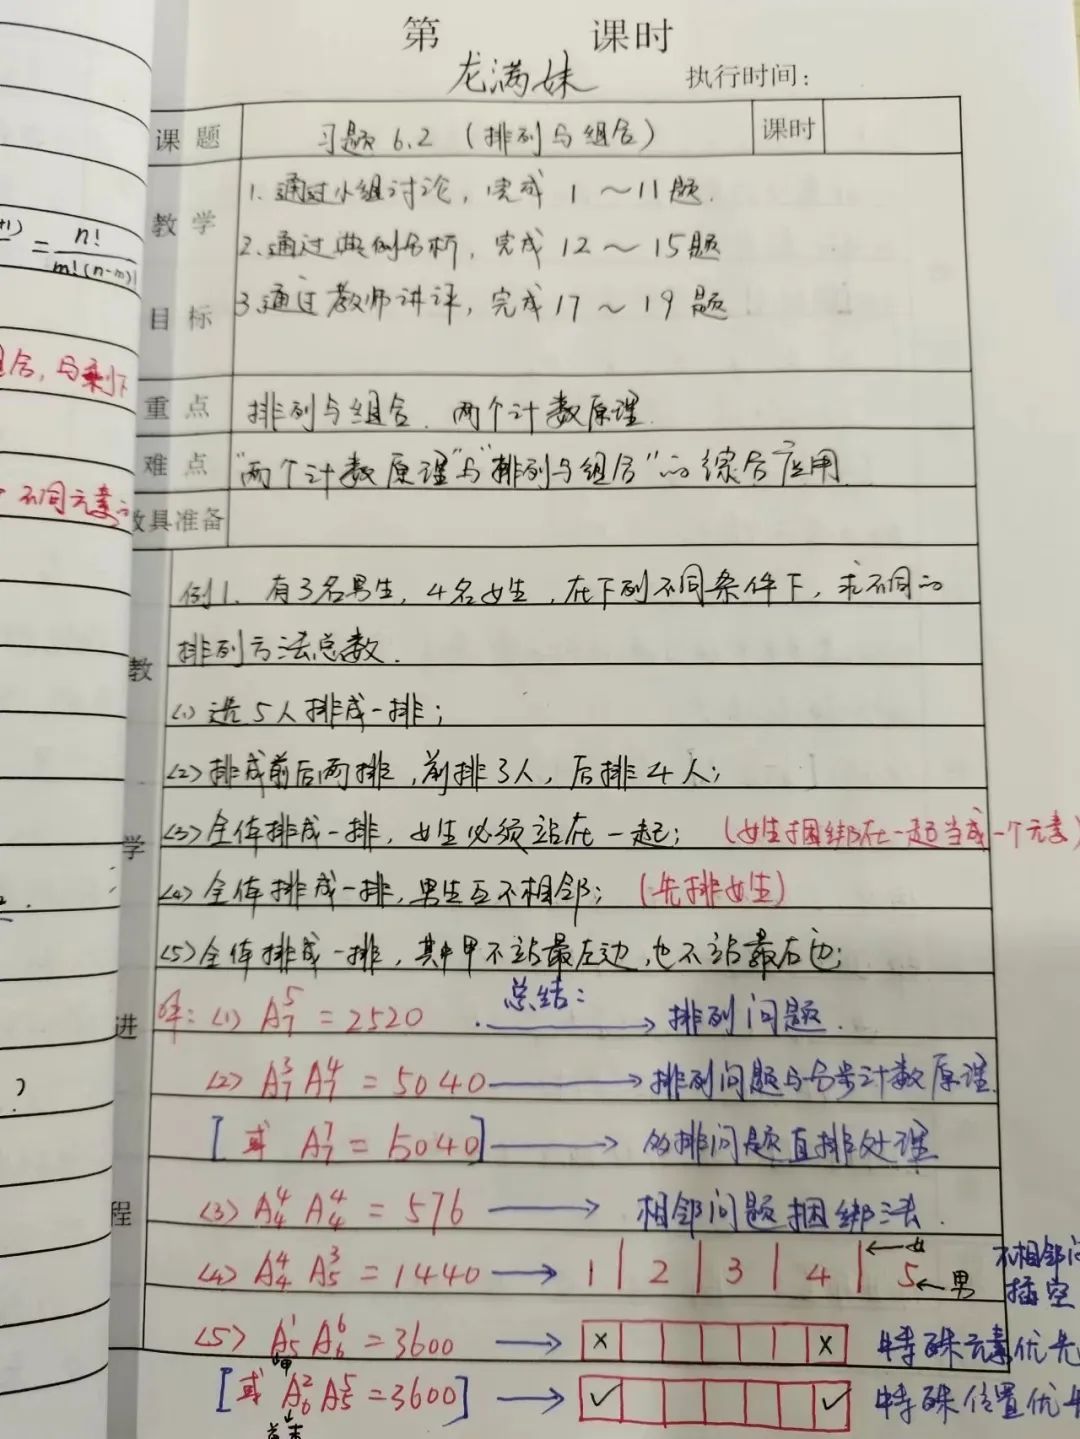 第 课时
龙满妹 执行时间:
课题 习题 6.2 (排列与组合) 课时
教学目标
1. 通过小组讨论, 完成 1~11题.
2. 通过典例分析, 完成 12~15题
3. 通过教师讲评, 完成17~19题
重点 排列与组合. 两个计数原理.
难点 "两个计数原理"与"排列与组合"的综合应用
教具准备
教学进程
例1. 有3名男生, 4名女生, 在下列不同条件下, 求不同的
排列方法总数.
<1> 选5人排成一排;
<2> 排成前后两排, 前排3人, 后排4人;
<3> 全体排成一排, 女生必须站在一起; (女生捆绑在一起当成一个元素)
<4> 全体排成一排, 男生互不相邻; (先排女生)
<5> 全体排成一排, 其中甲不站最左边, 也不站最右边;
解: <1> A₇⁵ = 2520 总结: → 排列问题.
<2> A₇³ A₄⁴ = 5040 → 排列问题与分步计数原理.
[或 A₇⁷ = 5040] → 分排问题直排处理
<3> A₄⁴ A₄⁴ = 576 → 相邻问题捆绑法.
<4> A₄⁴ A₅³ = 1440 → 1 | 2 | 3 | 4 | 5 ←女 ←男 不相邻问
插空
<5> A₅¹ A₆⁶ = 3600 → × × 特殊元素优先
甲
[或 A₆² A₅⁵ = 3600] → ✓ ✓ 特殊位置优先
首末
(n-m)!
= n!/m!(n-m)!
组合, 与剩下
不同元素的